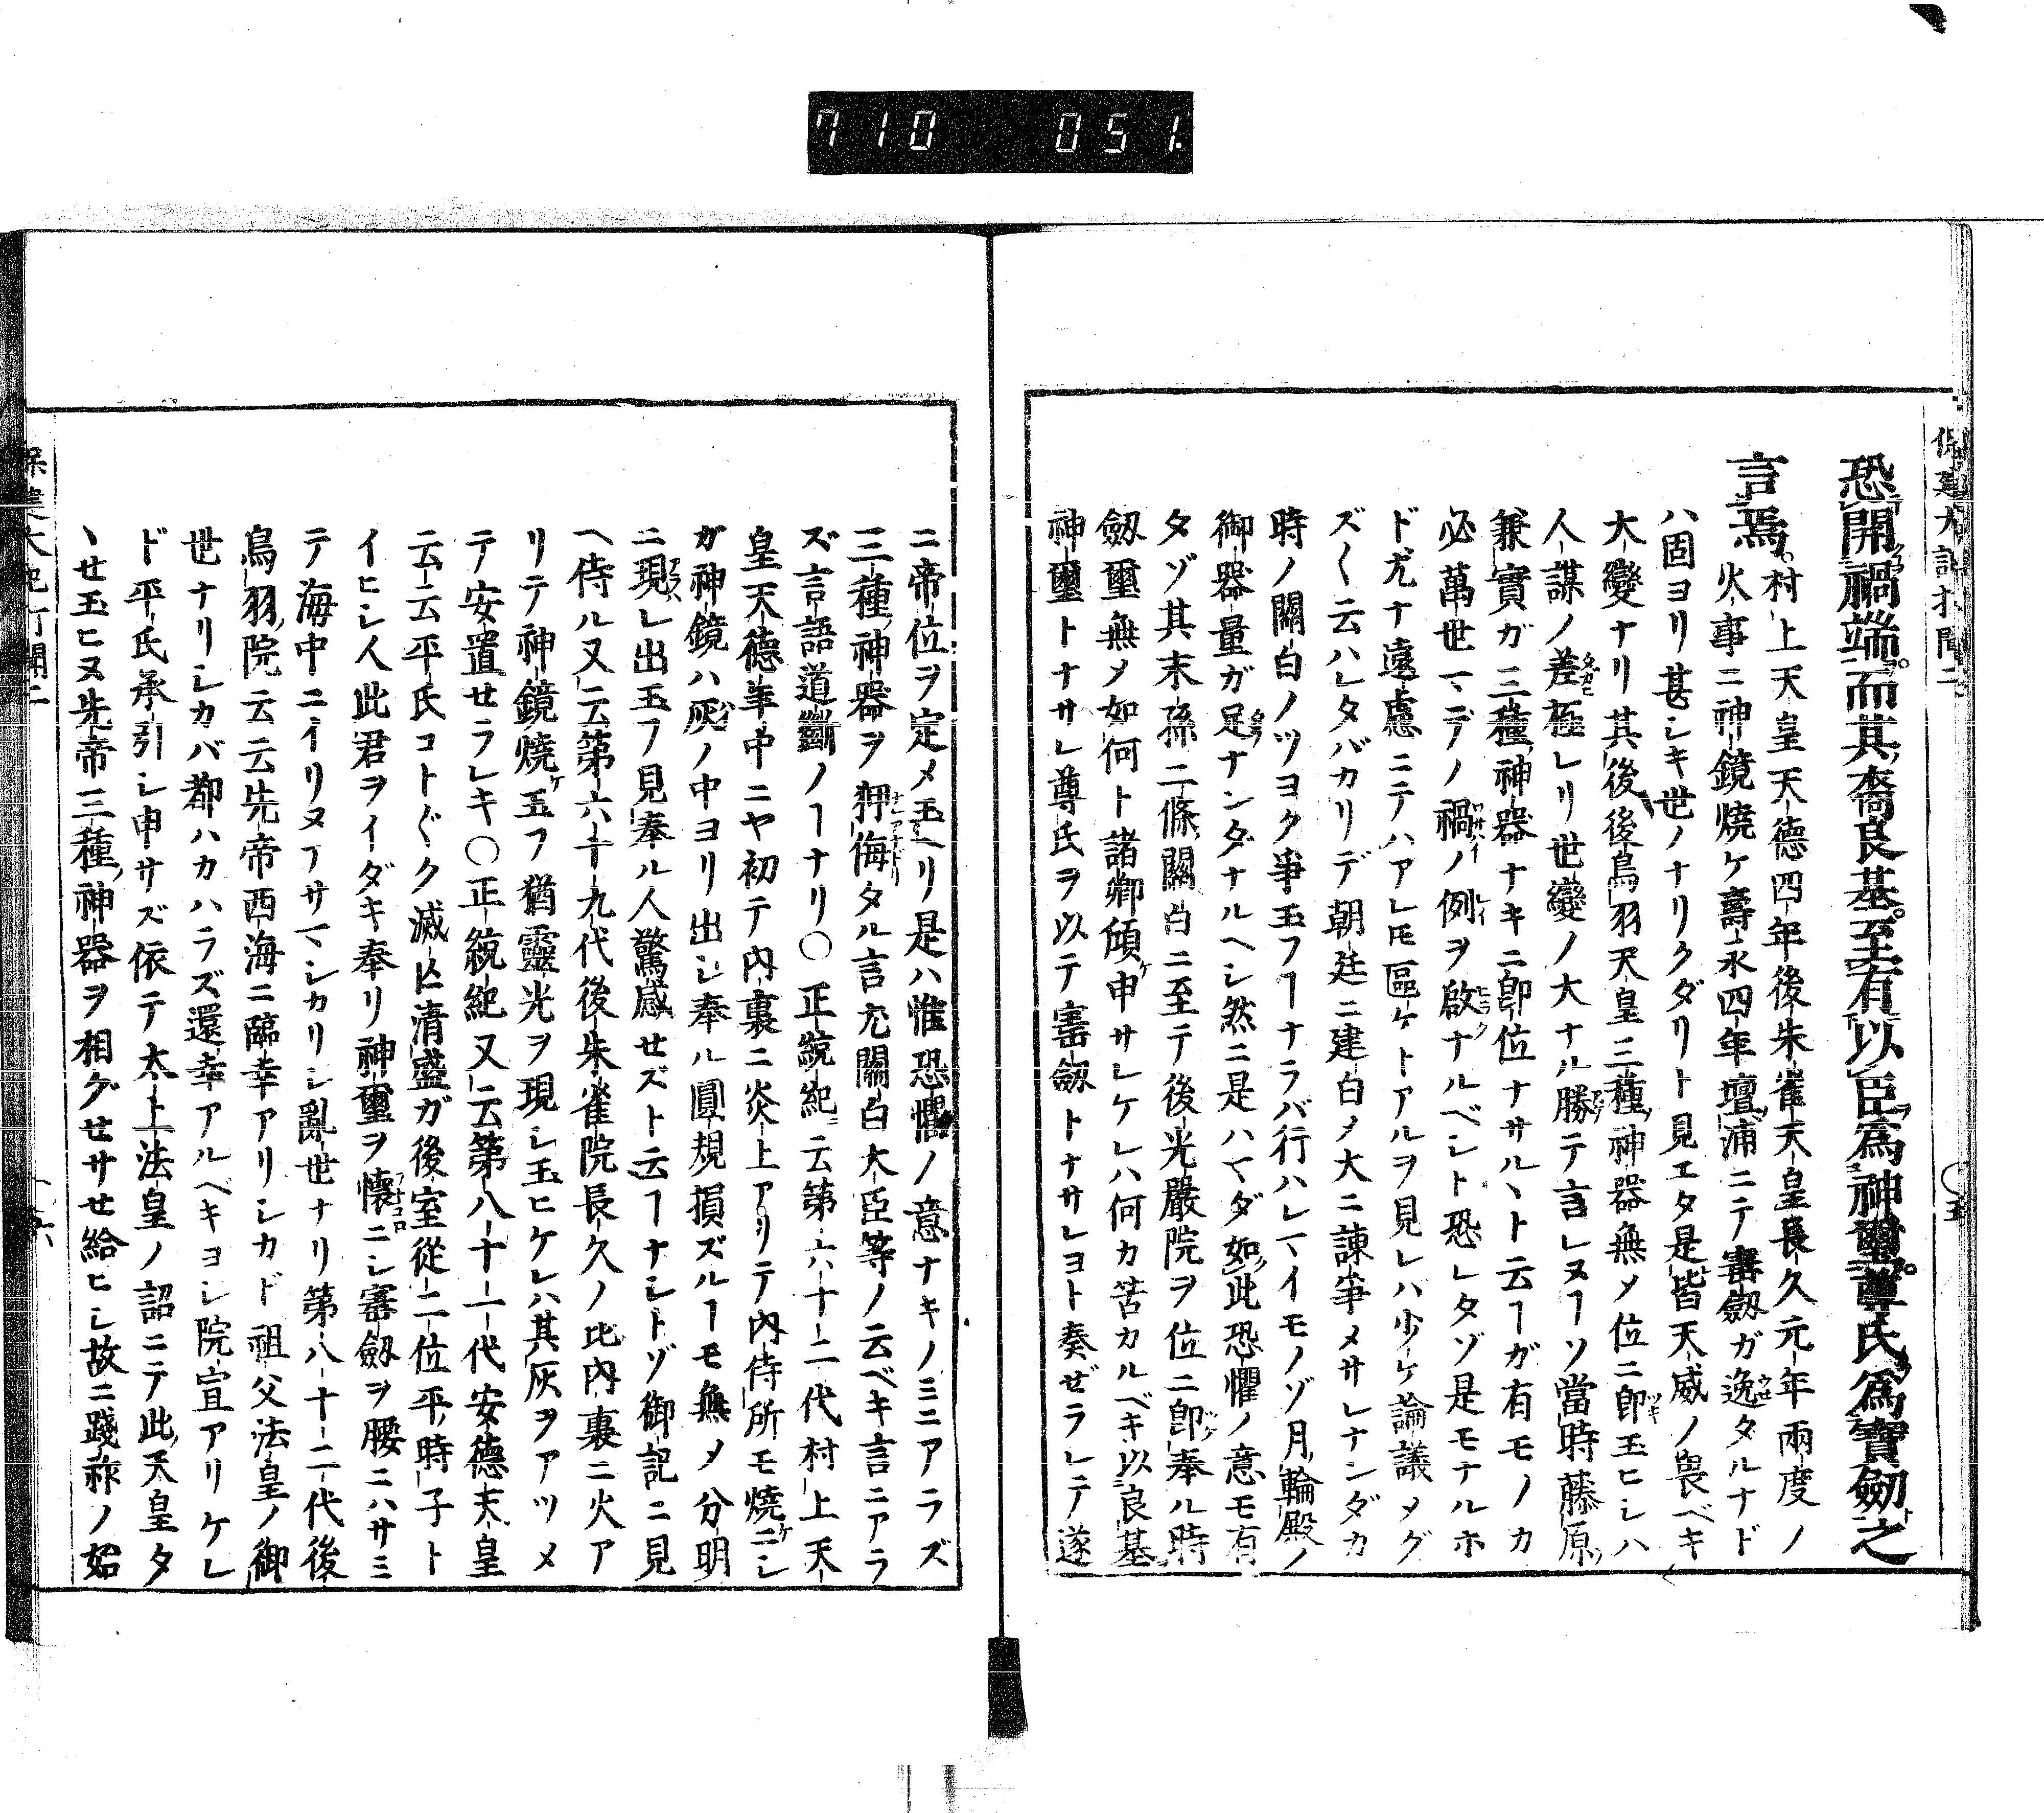 710 051.
保建大記打聞二 〇五
恐開禍端而其裔良基至有以臣爲神璽尊氏爲寶劒之
言焉
村上天皇天德四年後朱雀天皇長久元年兩度ノ
火事ニ神鏡燒ケ壽永四年壇浦ニテ寶劒ガ逸タルナド
ハ固ヨリ甚シキ世ノナリクダリト見エタ是皆天威ノ畏ベキ
大變ナリ其後後鳥羽天皇三種神器無メ位ニ卽玉ヒシハ
人謀ノ差極レリ世變ノ大ナル勝テ言レヌヿソ當時藤原
兼實ガ三種神器ナキニ卽位ナサルヽト云ヿガ有モノカ
必萬世マデノ禍ノ例ヲ啟ナルベシト恐レタゾ是モナルホ
ド尤ナ遠慮ニテハアレ𪜈區ケトアルヲ見レバ少ケ論議メグ
ズ〱云ハレタバカリデ朝廷ニ建白メ大ニ諫爭メサレナンダカ
時ノ關白ノツヨク爭玉フヿナラバ行ハレマイモノゾ月輪殿ノ
御器量ガ足ナンダナルヘシ然ニ是ハマダ如此恐懼ノ意モ有
タゾ其末孫二條關白ニ至テ後光嚴院ヲ位ニ卽奉ル時
劒璽無メ如何ト諸卿傾申サレケレハ何カ苦カルベキ以良基
神璽トナサレ尊氏ヲ以テ寶劒トナサレヨト奏ゼラレテ遂
ニ帝位ヲ定メ玉ヘリ是ハ惟恐懼ノ意ナキノミニアラズ
三種神器ヲ狎侮タル言尤關白大臣等ノ云ベキ言ニアラ
ズ言語道斷ノヿナリ〇正統紀ニ云第六十二代村上天
皇天德年中ニヤ初テ內裏ニ炎上アリテ內侍所モ燒ニシ
ガ神鏡ハ灰ノ中ヨリ出シ奉ル圓規損ズルヿモ無メ分明
ニ現レ出玉フ見奉ル人驚感せズト云ヿナシトゾ御記ニ見
ヘ侍ル又云第六十九代後朱雀院長久ノ比內裏ニ火ア
リテ神鏡燒玉フ猶靈光ヲ現シ玉ヒケレハ其灰ヲアツメ
テ安置せラレキ〇正統紀又云第八十一代安德末皇
云云平氏コト〲ク滅亡清盛ガ後室從二位平時子ト
イヒシ人此君ヲイダキ奉リ神璽ヲ懷ニシ寶劒ヲ腰ニハサミ
テ海中ニイリヌアサマシカリシ亂世ナリ第八十二代後
鳥羽院云云先帝西海ニ臨幸アリシカド祖父法皇ノ御
世ナリシカバ都ハカハラズ還幸アルベキヨシ院宣アリケレ
ド平氏承引シ申サズ依テ太上法皇ノ詔ニテ此天皇タ
ヽせ玉ヒヌ先帝三種神器ヲ相グせサせ給ヒシ故ニ踐祚ノ始
保建大記打聞二 〇六